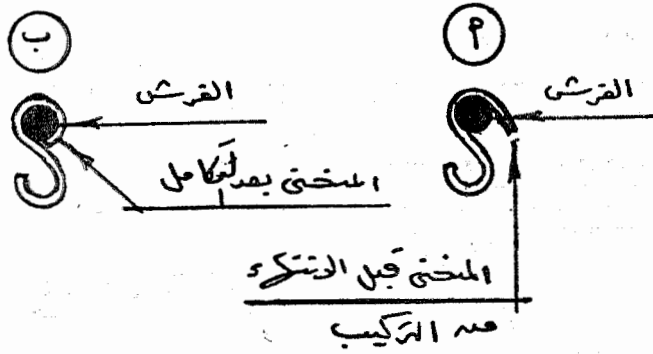 أ
القرش
المنحنى قبل الانتهاء
من التركيب
ب
القرش
المنحنى بعد التكامل